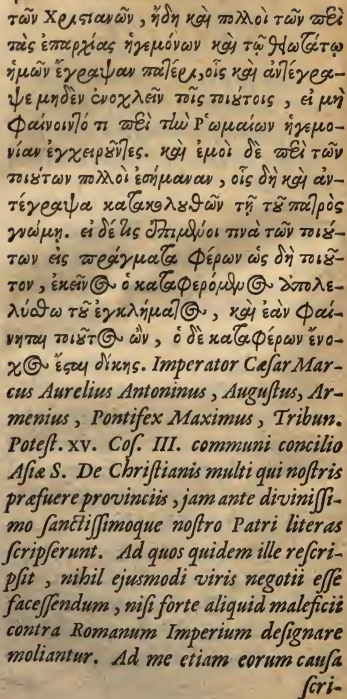 τῶν Χριστιανῶν, ἤδη καὶ πολλοὶ τῶν περὶ
τὰς ἐπαρχίας ἡγεμόνων καὶ τῷ θειωτάτῳ
ἡμῶν ἔγραψαν πατέρι, οἷς καὶ ἀντέγρα-
ψε μηδὲν ἐνοχλεῖν τοῖς τοιούτοις, εἰ μὴ
φαίνοιντό τι περὶ τὴν Ῥωμαίων ἡγεμο-
νίαν ἐγχειροῦντες. καὶ ἐμοὶ δὲ περὶ τῶν
τοιούτων πολλοὶ ἐσήμαναν, οἷς δὴ καὶ ἀν-
τέγραψα κατακολουθῶν τῇ τοῦ πατρὸς
γνώμῃ. εἰ δέ τις ἐπιμένοι τινὰ τῶν τοιού-
των εἰς πράγματα φέρων ὡς δὴ τοιοῦ-
τον, ἐκεῖνος ὁ καταφερόμενος ἀπολε-
λύσθω τοῦ ἐγκλήματος, καὶ ἐὰν φαί-
νηται τοιοῦτος ὢν, ὁ δὲ καταφέρων ἔνο-
χος ἔσται δίκης. Imperator Cæſar Mar-
cus Aurelius Antoninus, Auguſtus, Ar-
menius, Pontifex Maximus, Tribun.
Poteſt. XV. Coſ. III. communi concilio
Aſiæ S. De Chriſtianis multi qui noſtris
præfuere provinciis, jam ante diviniſſi-
mo ſanctiſſimoque noſtro Patri literas
ſcripſerunt. Ad quos quidem ille reſcri-
pſit, nihil ejuſmodi viris negotii eſſe
faceſſendum, niſi forte aliquid maleficii
contra Romanum Imperium deſignare
moliantur. Ad me etiam eorum cauſa
ſcri-